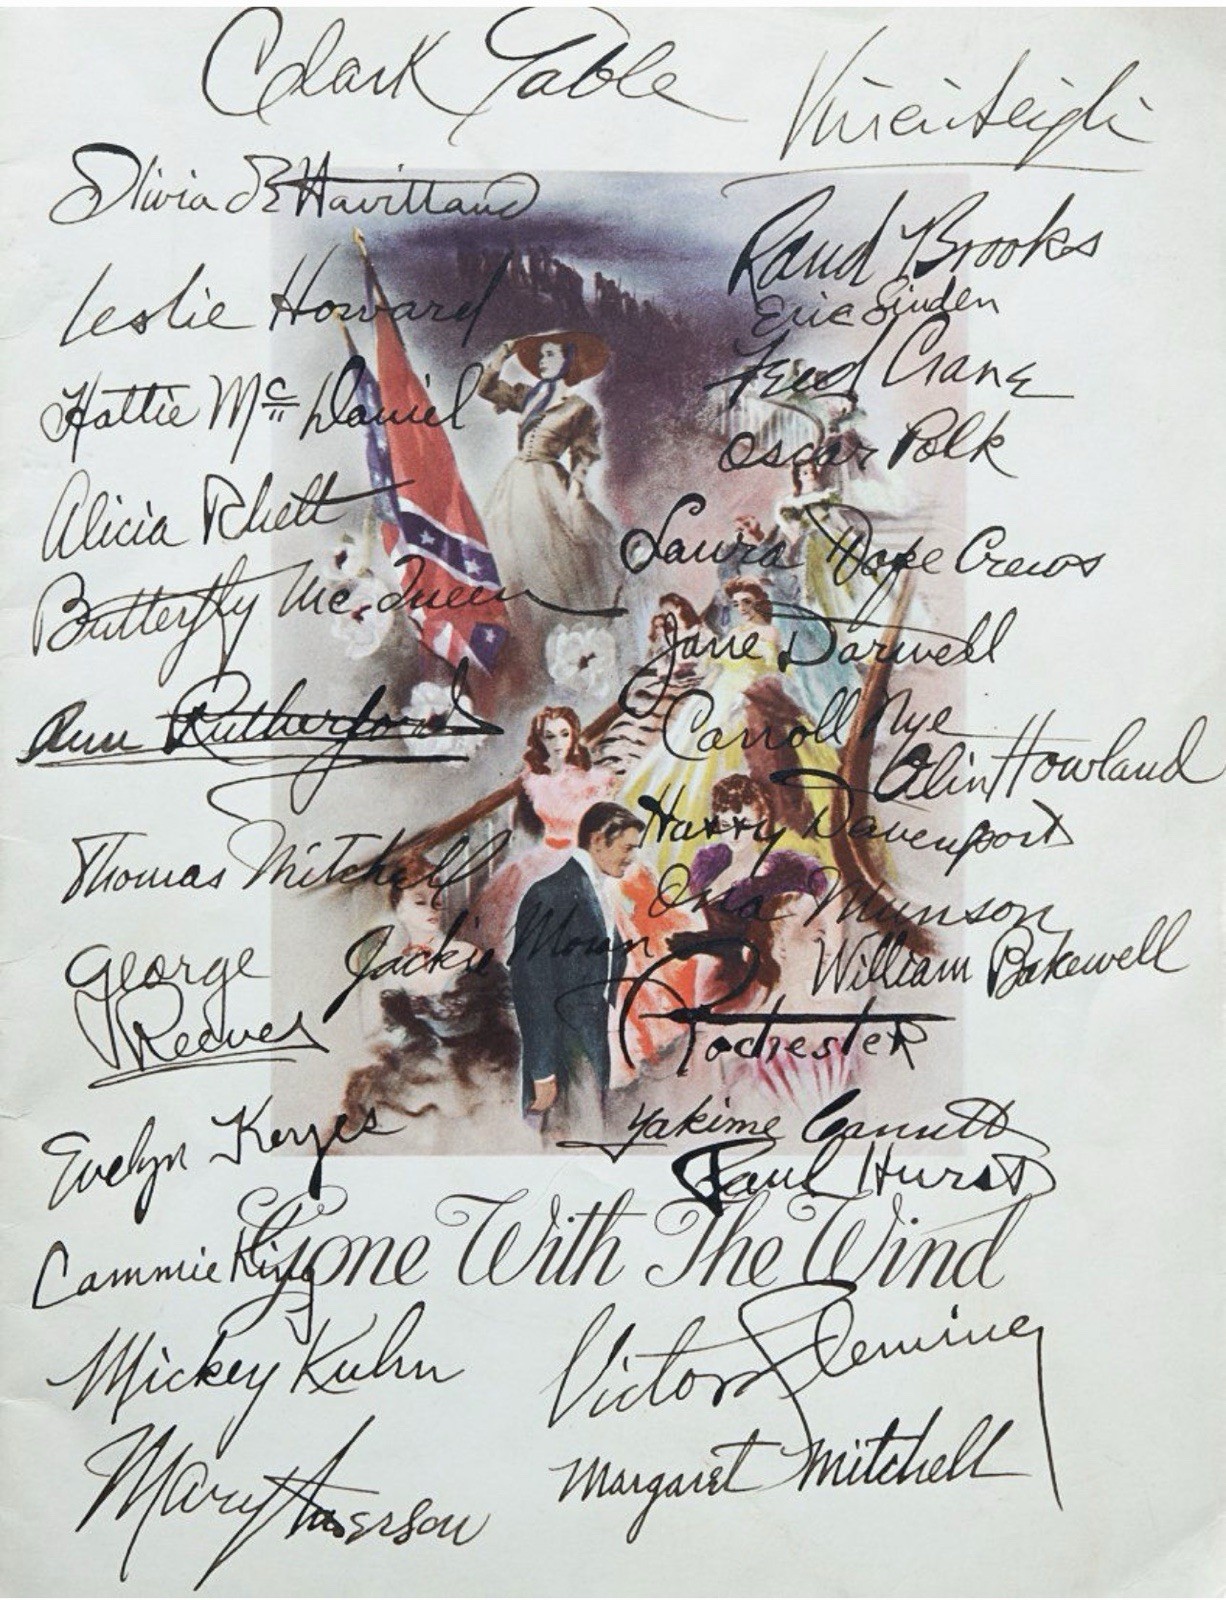 Clark Gable
Vivien Leigh
Olivia de Havilland
Leslie Howard
Hattie McDaniel
Alicia Rhett
Butterfly McQueen
Ann Rutherford
Thomas Mitchell
George
Reeves
Jackie Moran
Evelyn Keyes
Cammie King
Mickey Kuhn
Mary Anderson
Rand Brooks
Eric Linden
Fred Crane
Oscar Polk
Laura Hope Crews
Jane Darwell
Carroll Nye
Olin Howland
Harry Davenport
Ona Munson
William Bakewell
Rochester
Yakima Canutt
Paul Hurst
Gone With The Wind
Victor Fleming
Margaret Mitchell